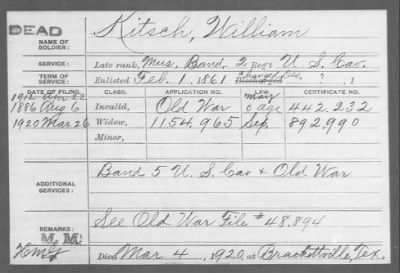 DEAD
NAME OF SOLDIER: Kitsch, William
SERVICE: Late rank, Mus. Band, 2 Reg't U. S. Cav.
TERM OF SERVICE: Enlisted Feb. 1, 1861
DATE OF FILING. CLASS. APPLICATION NO. LAW. CERTIFICATE NO.
1912 Apr 22 May
1886 Aug 6 Invalid, Old War 442.232
1920 Mar 26 Widow, 1154.965 892.990
Minor,
ADDITIONAL SERVICES: Band 5 U. S. Cav & Old War
REMARKS: See Old War File #48.894
M. M.
Died Mar 4, 1920, at Brackettville, Tex.